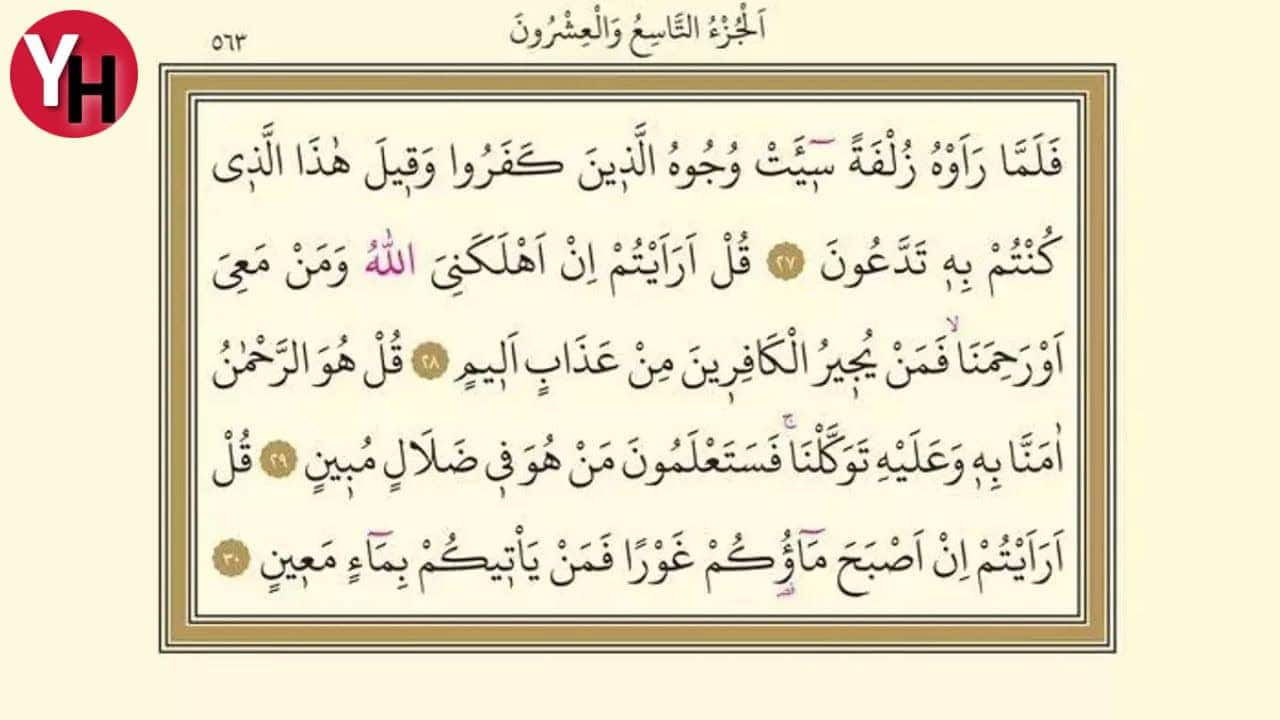 YH
اَلْجُزْءُ التَّاسِعُ وَالْعِشْرُونَ
٥٦٣
فَلَمَّا رَاَوْهُ زُلْفَةً سٖٓئَتْ وُجُوهُ الَّذٖينَ كَفَرُوا وَقٖيلَ هٰذَا الَّذٖى
كُنْتُمْ بِهٖ تَدَّعُونَ ٢٧ قُلْ اَرَاَيْتُمْ اِنْ اَهْلَكَنِىَ اللّٰهُ وَمَنْ مَعِىَ
اَوْ رَحِمَنَاۙ فَمَنْ يُجٖيرُ الْكَافِرٖينَ مِنْ عَذَابٍ اَلٖيمٍ ٢٨ قُلْ هُوَ الرَّحْمٰنُ
اٰمَنَّا بِهٖ وَعَلَيْهِ تَوَكَّلْنَاۚ فَسَتَعْلَمُونَ مَنْ هُوَ فٖى ضَلَالٍ مُبٖينٍ ٢٩ قُلْ
اَرَاَيْتُمْ اِنْ اَصْبَحَ مَٓاؤُ۬كُمْ غَوْرًا فَمَنْ يَاْتٖيكُمْ بِمَٓاءٍ مَعٖينٍ ٣٠